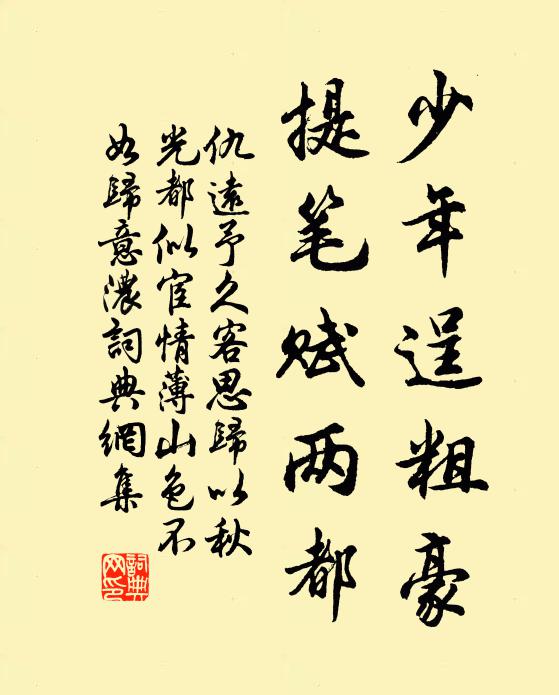 少年逞粗豪
提笔赋两都
仇遠予久客思歸以秋
光都似宦情薄山色不
如歸意濃詞典網集
詞典网印